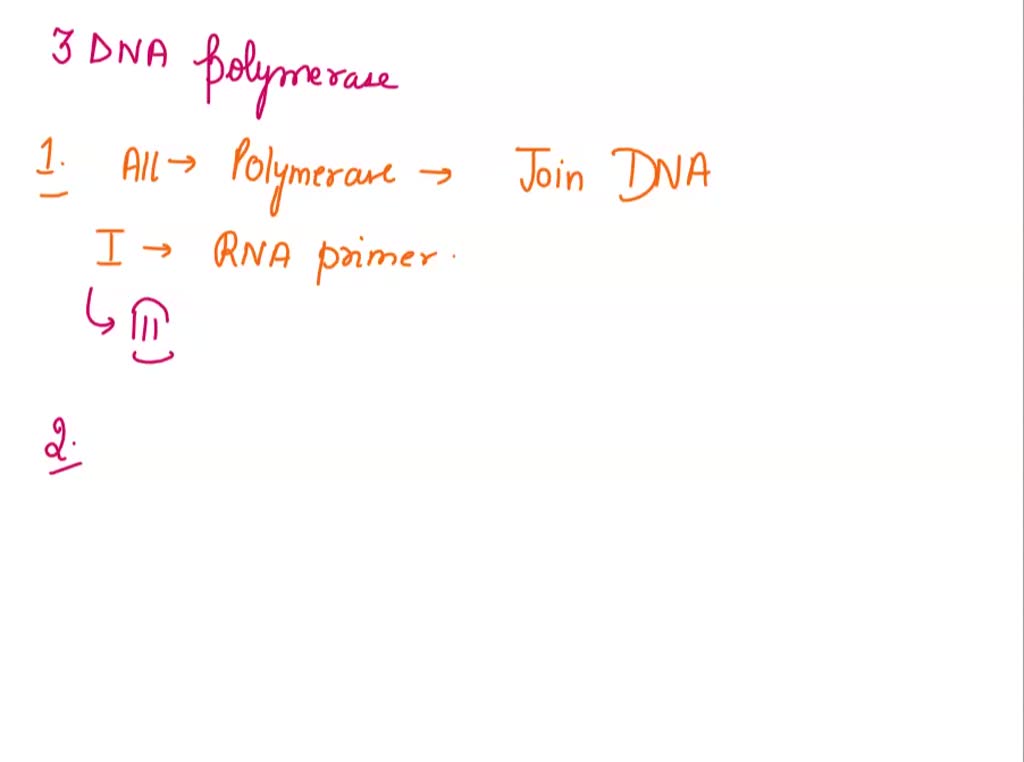 3 DNA polymerase
1. All → Polymerase → Join DNA
I → RNA primer.
↳ III
2.